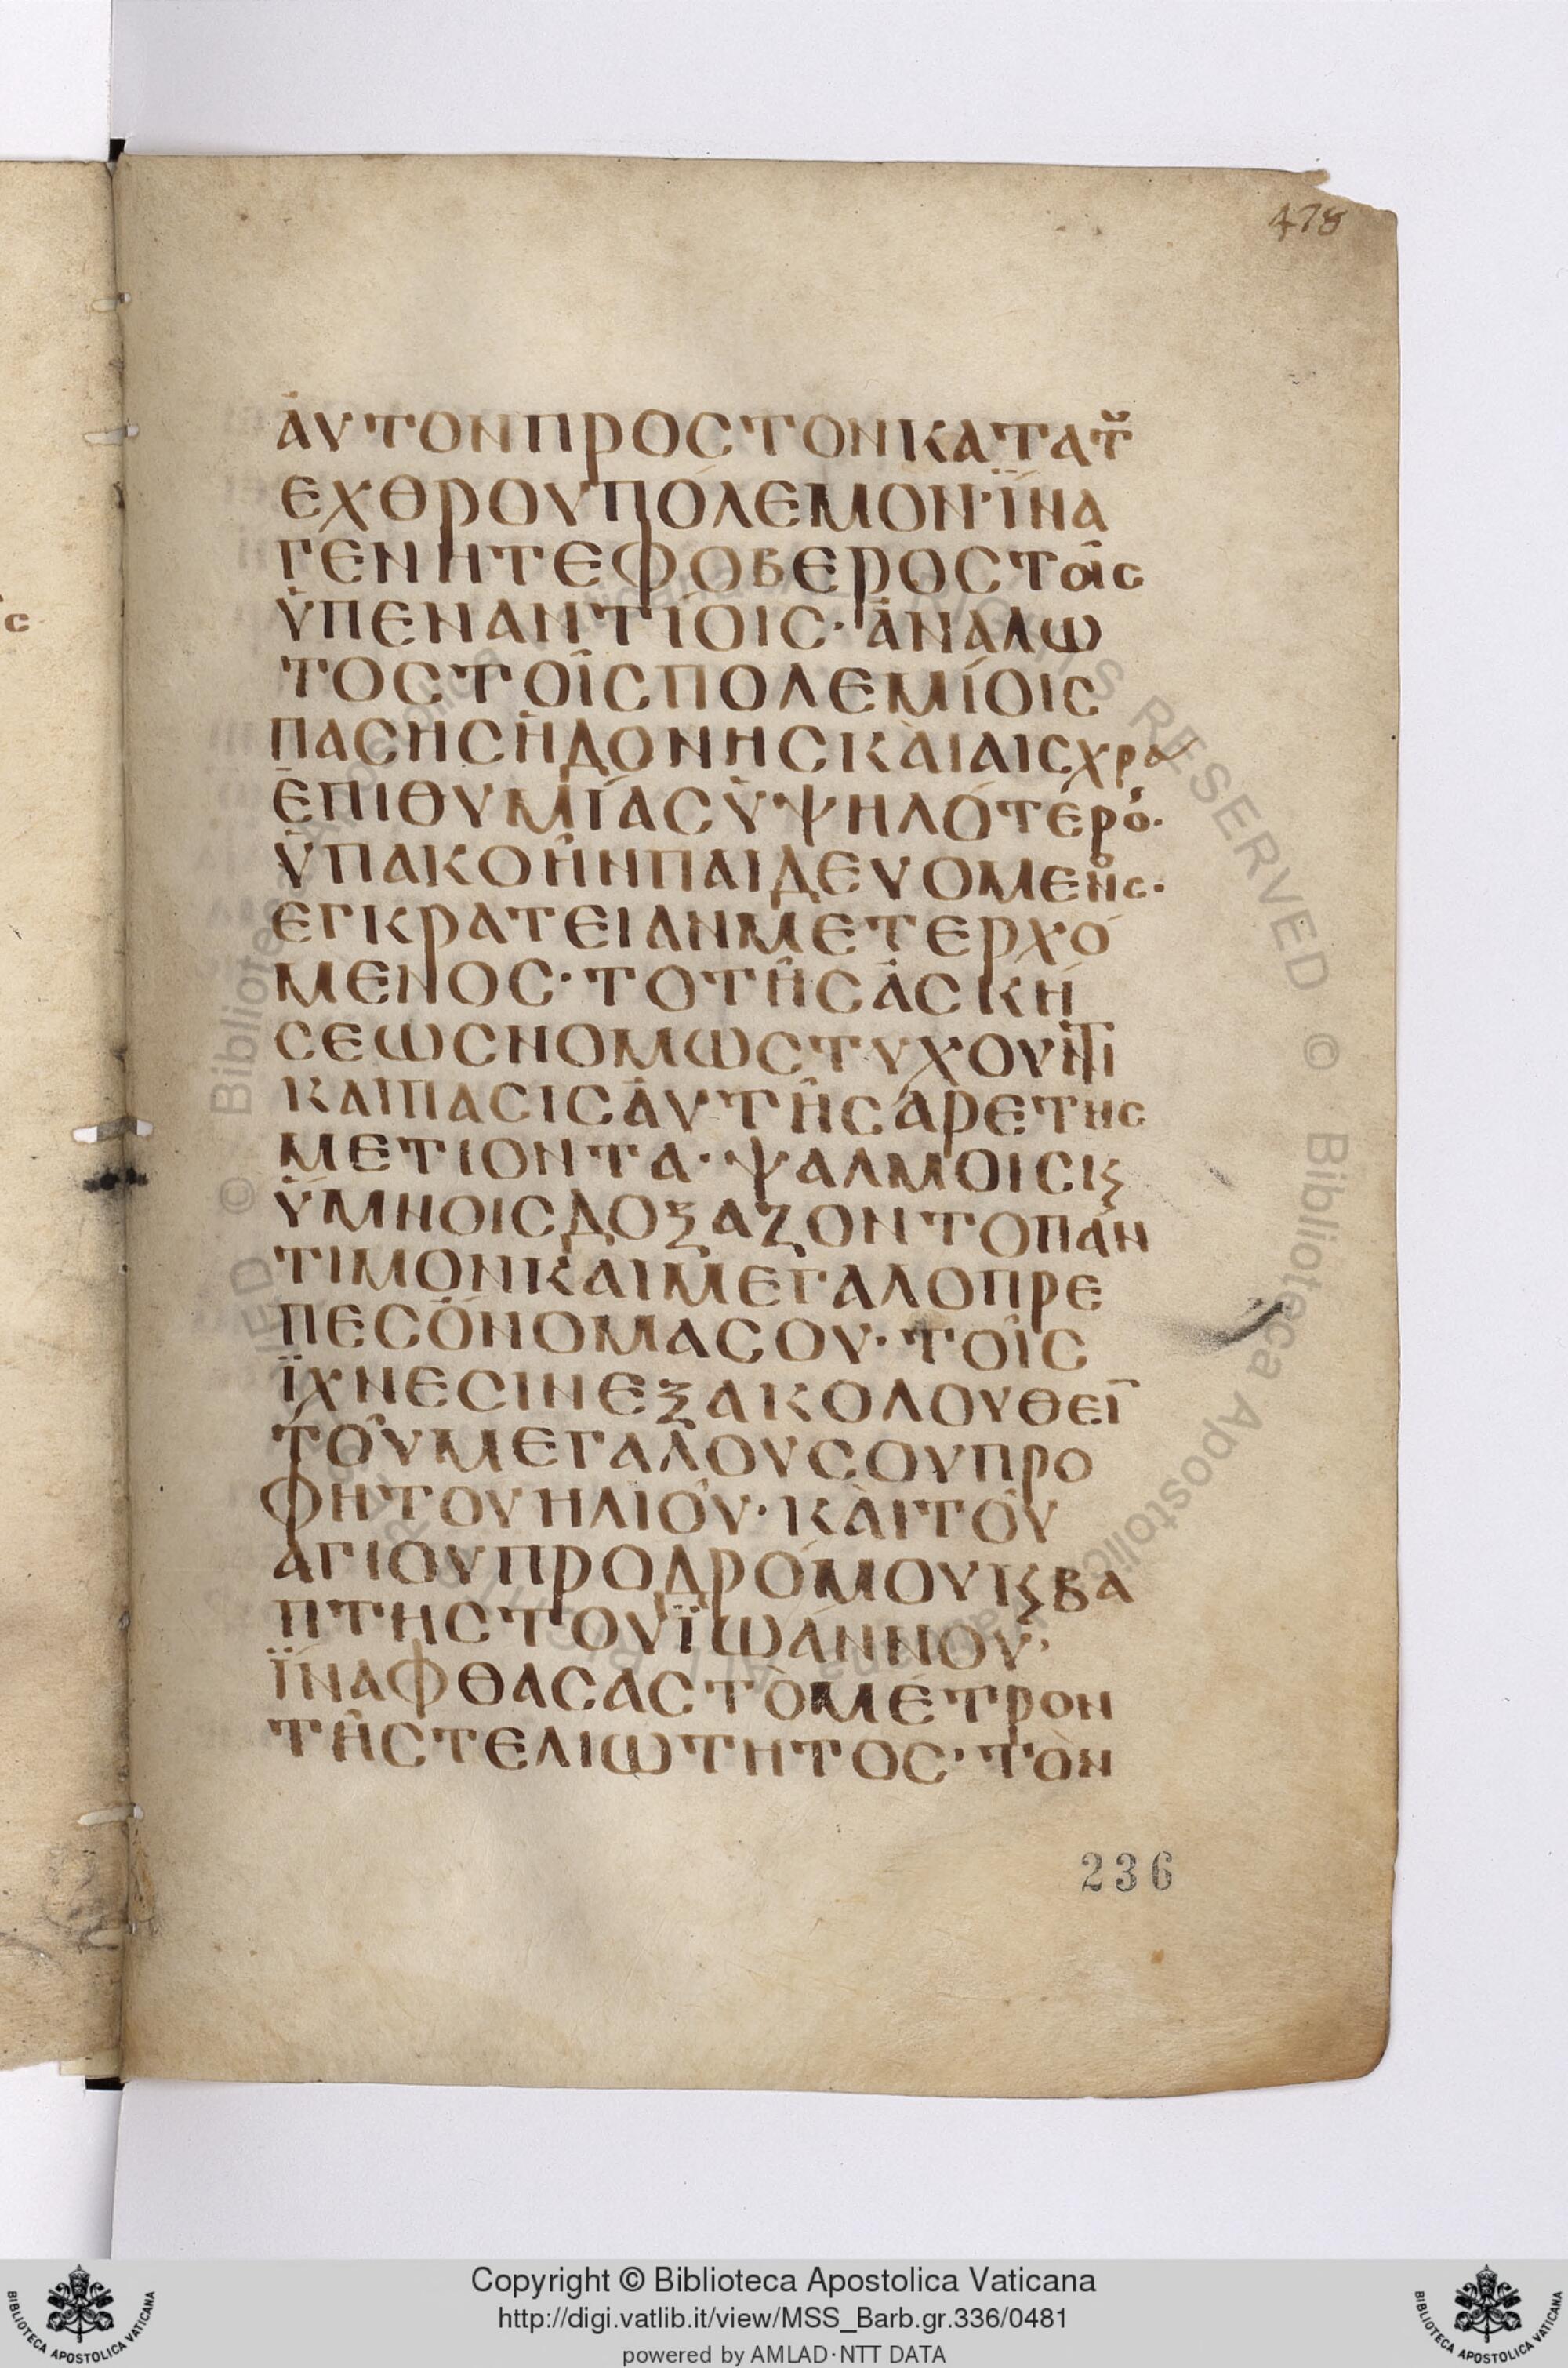 478
ἀΥΤΟΝΠΡΟϹΤΟΝΚΑΤΑΤȣ͂
ΕΧΘΡΟΥΠΌΛΕΜΟΝ·ΪΝΑ
ΓΈΝΗΤΕΦΟΒΕΡΟϹΤΟῖϹ
ὙΠΕΝΑΝΤΊΟΙϹ·ἈΝΑΛΩ
ΤΟϹΤΟῖϹΠΟΛΕΜΊΟΙϹ
ΠΑϹΗϹἩΔΟΝΗϹΚΑῚΑΙϹΧΡΑ
ἘΠΙΘΥΜΊΑϹὙΨΗΛΌΤΕΡΟ·
ὙΠΑΚΟῊΝΠΑΙΔΕΥΟΜΕΝΟϹ·
ΕΓΚΡΑΤΕΙΑΝΜΕΤΕΡΧΌ
ΜΕΝΟϹ·ΤΟΤῆϹἈϹΚΉ
ϹΕΩϹΝΟΜΩϹΤΥΧΟΥΝΤΙ
ΚΑΙΠΑϹΙϹἈΥΤῆϹἈΡΕΤΗϹ
ΜΕΤΙΟΝΤΑ·ΨΑΛΜΟΙϹΚϚ
ὙΜΝΟΙϹΔΟΞΑΖΟΝΤΟΠΆΝ
ΤΙΜΟΝΚΑΙΜΕΓΑΛΟΠΡΕ
ΠΕϹὌΝΟΜΑϹΟΥ·ΤΟῖϹ
ΪΧΝΕϹΙΝΕΞΑΚΟΛΟΥΘΕΙ̅
ΤΟῦΜΕΓΆΛΟΥϹΟΥΠΡΟ
ΦΗΤΟΥΗΛΙΟΎ·ΚΑῚΤΟῦ
ΑΓΙΟΥΠΡΟΔΡΌΜΟΥΚϚΒΑ
ΠΤΗϹΤΟΥΪΩΆΝΝΟΥ·
ΪΝΑΦΘΑϹΑϹΤῸΜΈΤΡΟΝ
ΤῆϹΤΕΛΙΩΤΗΤΟϹ·ΤῸΝ
236
Copyright © Biblioteca Apostolica Vaticana
http://digi.vatlib.it/view/MSS_Barb.gr.336/0481
powered by AMLAD·NTT DATA